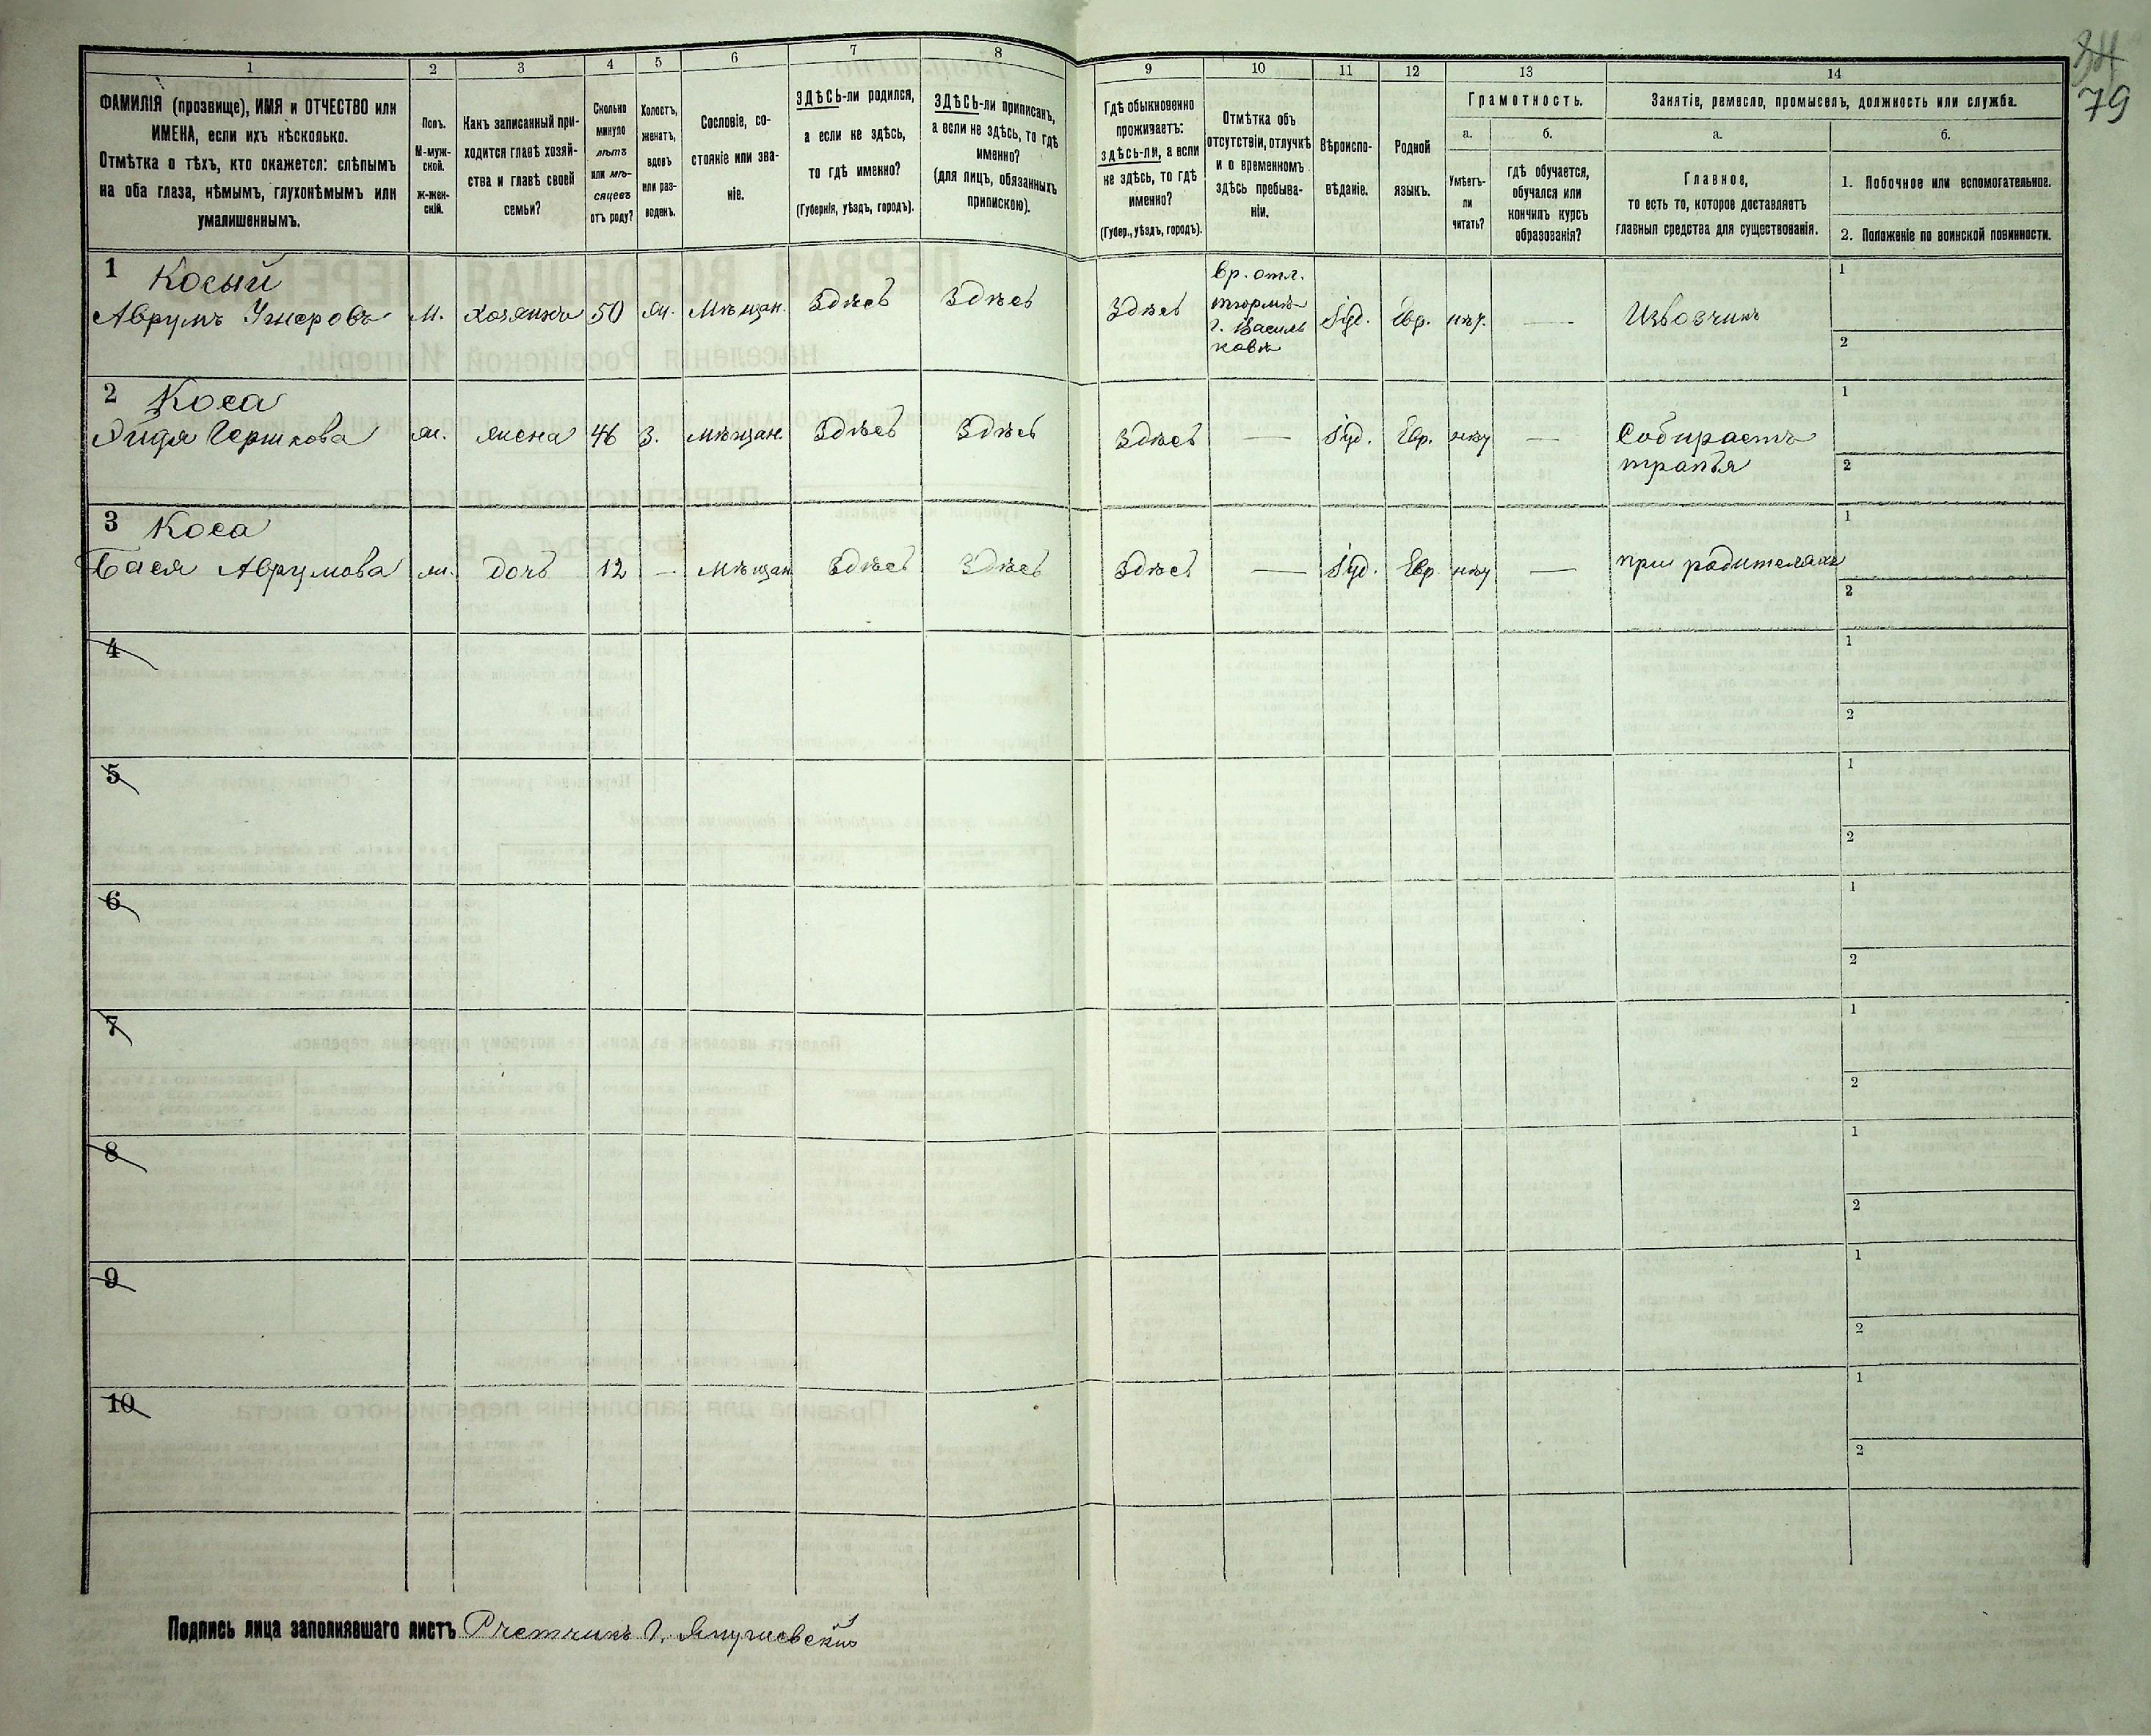 34
79
1
2
3
4
5
6
7
8
9
10
11
12
13
14
ФАМИЛІЯ (прозвище), ИМЯ и ОТЧЕСТВО или
ИМЕНА, если ихъ нѣсколько.
Отмѣтка о тѣхъ, кто окажется: слѣпымъ
на оба глаза, нѣмымъ, глухонѣмымъ или
умалишеннымъ.
Полъ.
М-муж-
ской.
ж-жен-
скій.
Какъ записанный при-
ходится главѣ хозяй-
ства и главѣ своей
семьи?
Сколько
минуло
лѣтъ
или мѣ-
сяцевъ
отъ роду?
Холостъ,
женатъ,
вдовъ
или раз-
веденъ.
Сословіе, со-
стояніе или зва-
ніе.
ЗДѢСЬ-ли родился,
а если не здѣсь,
то гдѣ именно?
(Губернія, уѣздъ, городъ).
ЗДѢСЬ-ли приписанъ,
а если не здѣсь, то гдѣ
именно?
(для лицъ, обязанныхъ
припискою).
Гдѣ обыкновенно
проживаетъ:
здѣсь-ли, а если
не здѣсь, то гдѣ
именно?
(Губер., уѣздъ, городъ).
Отмѣтка объ
отсутствіи, отлучкѣ
и о временномъ
здѣсь пребыва-
ніи.
Вѣроиспо-
вѣданіе.
Родной
языкъ.
Грамотность.
а.
б.
Умѣетъ-
ли
читать?
гдѣ обучается,
обучался или
кончилъ курсъ
образованія?
Занятіе, ремесло, промыселъ, должность или служба.
а.
б.
Главное,
то есть то, которое доставляетъ
главныя средства для существованія.
1. Побочное или вспомогательное.
2. Положеніе по воинской повинности.
1 Косый
Аврумъ Ушеровъ М. хозяинъ 50 ж. Мѣщан. Здѣсь Здѣсь Здѣсь
вр. отл.
тюрмѣ
г. Василь
ковѣ
Іуд. Евр. нѣт. — Извозчикъ
1
2
2 Коса
Гершкова ж. жена 46 З. мѣщан. Здѣсь Здѣсь Здѣсь — Іуд. Евр. нѣт — Собираетъ
трапья
1
2
3 Коса
Бася Аврумова ж. дочь 12 — Мѣщан Здѣсь Здѣсь Здѣсь — Іуд. Евр нѣт — при родителяхъ
1
2
4
1
2
5
1
2
6
1
2
7
1
2
8
1
2
9
1
2
10
1
2
Подпись лица заполнявшаго листъ Счетчикъ